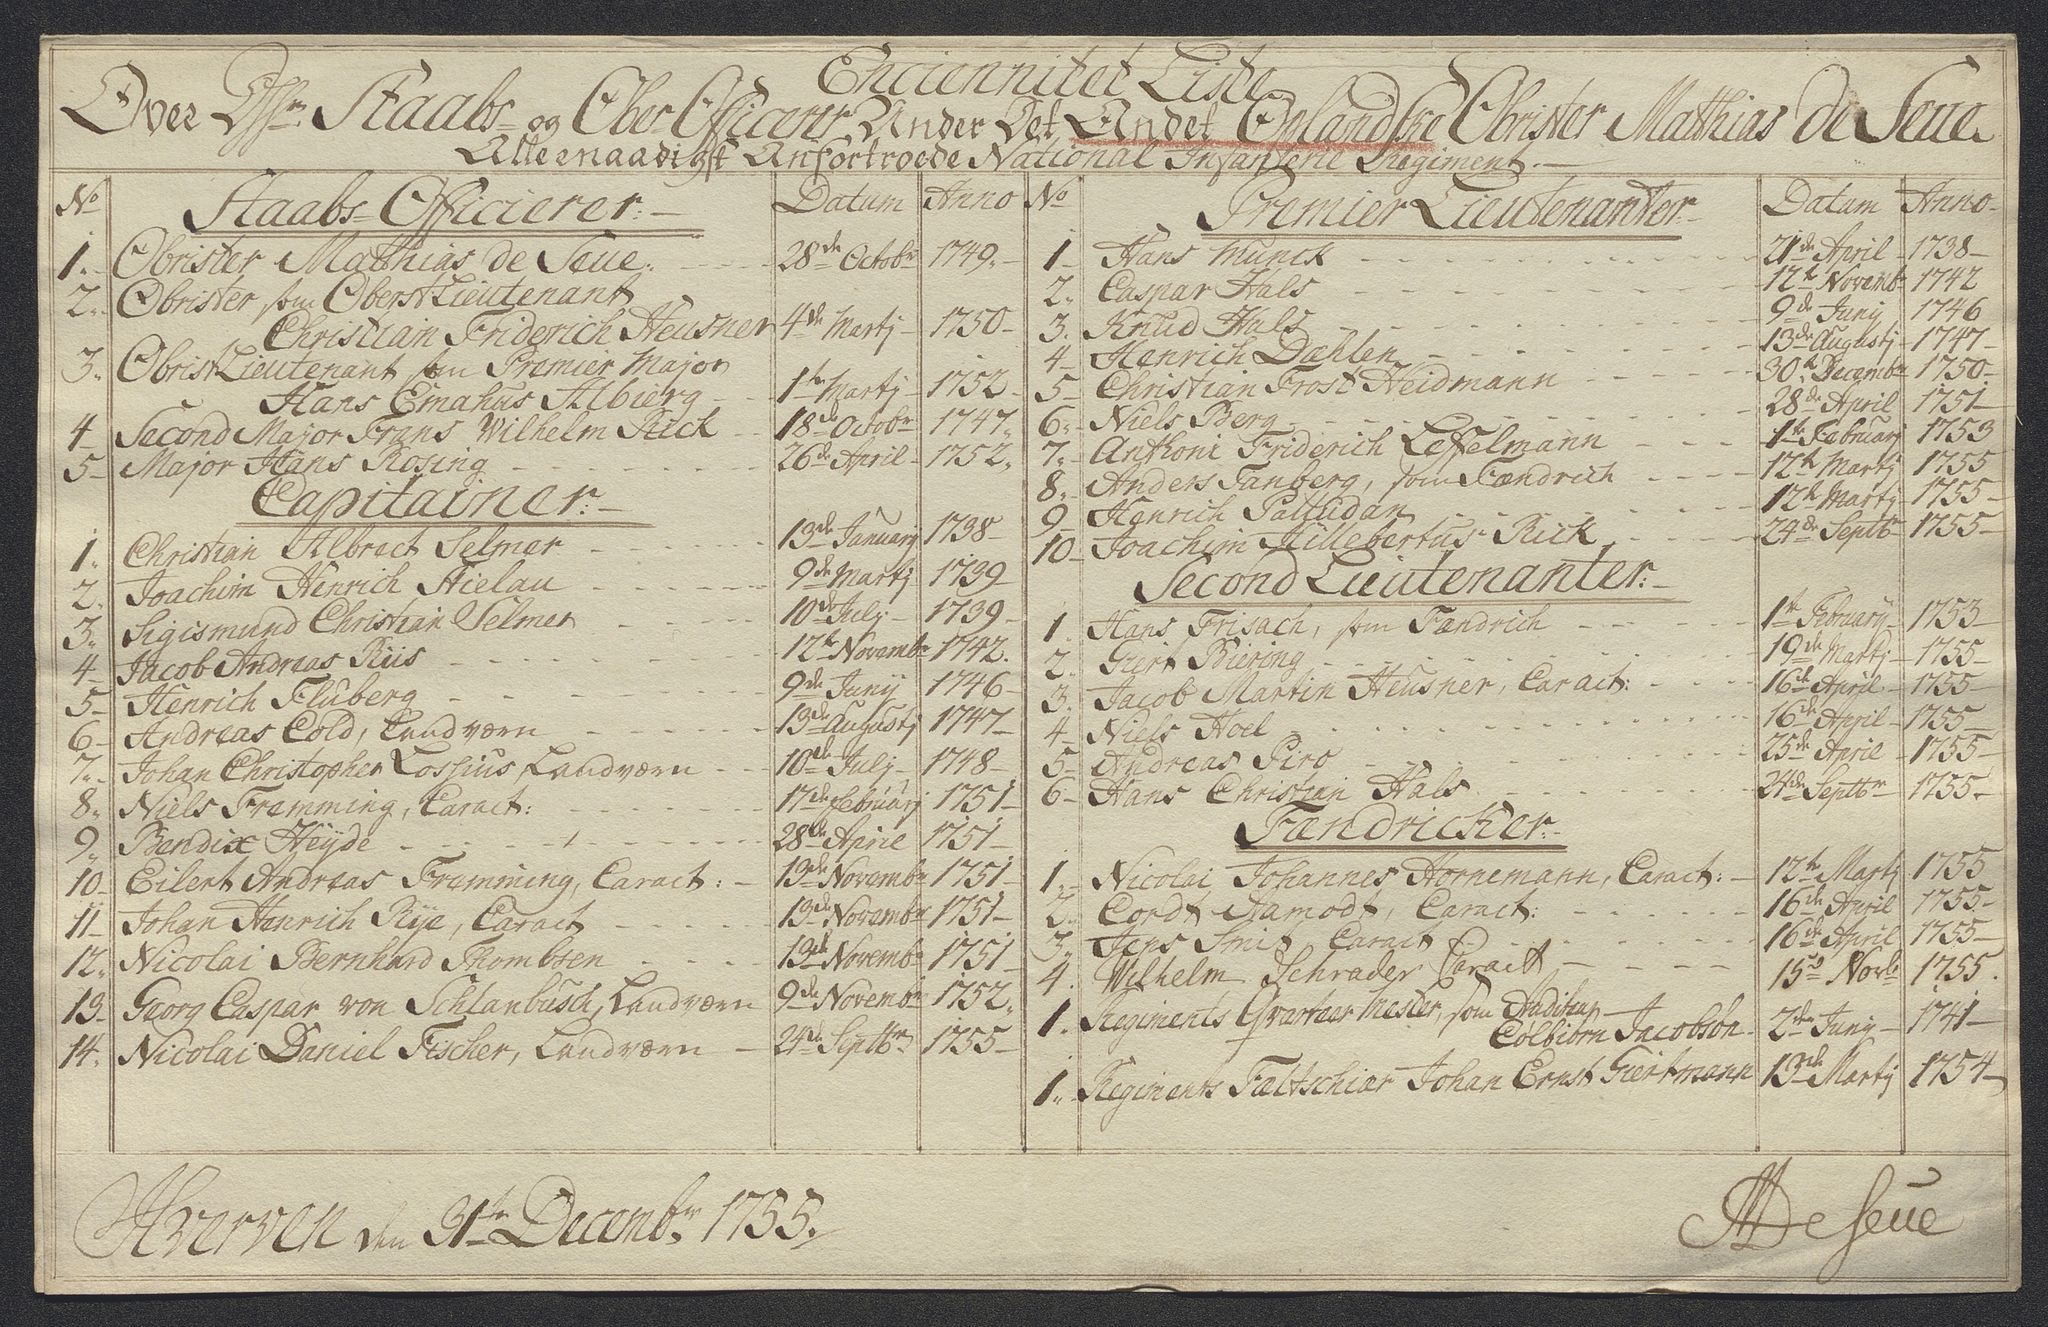 Enciennitet Liste
Over Dhrr Staabs og Ober Officerer Under Det Andet Oplandske Obrister Mathias De Seue
Allernaadigst Anfortroede National Infanterie Regiment.
No Staabs-Officierer: Datum Anno
1. Obrister Mathias de Seue. 28de Octobr 1749.
2. Obrister, som OberstLieutenant
Christian Friderich Heusner 4de Martj 1750
3. ObristLieutenant som Premier Major
Hans Emahus Albierg 1te Martj 1752
4 Second Major Frans Wilhelm Rick 18de Octobr 1747.
5 Major Hans Rosing 26de April 1752.
Capitainer:
1. Christian Albrect Selmer 13de January 1738
2. Joachim Henrich Hielau 9de Martj 1739
3. Sigismund Christian Selmer 10de July 1739
4 Jacob Andreas Riis 12te Novembr 1742.
5 Henrich Fluberg 9de Junij 1746
6 Andreas Cold, Landværn 13de Augustj 1747
7. Johan Christopher Lossius, Landværn 10de Julj 1748
8. Niels Fremming, Caract: 17de Februarj 1751
9. Bendix Heyde 28de April 1751
10 Eilert Andreas Fremming, Caract: 13de Novembr 1751
11 Johan Henrich Rye, Caract 13de Novembr 1751
12. Nicolai Bernhard Thombsen 13de Novembr 1751
13 Georg Caspar von Schlanbusch, Landværn 9de Novembr 1752.
14. Nicolai Daniel Fischer, Landværn 24de Septbr 1755
No Premier Lieutenanter Datum Anno
1 Hans Munck 21de April 1738
2. Caspar Hals 12te Novembr 1742
3. Knud Hals 9de Junij 1746
4 Henrich Dæhlen 13de Augustj 1747
5 Christian Frost Heidmann 30te Decembr 1750
6. Niels Berg 28de April 1751
7. Anthoni Friderich Leffelmann 1te Februarj 1753
8. Anders Tanberg, som Fændrich 12te Martj 1755
9 Henrich Palludan 12te Martj 1755
10 Joachim Hillebertus Rick 24de Septbr 1755
Second Lieutenanter:
1. Hans Frisach, som Fændrich 1te February 1753
2. Giert Biering 19de Martj 1755
3. Jacob Martin Heusner, Caract: 16de April 1755
4 Niels Hoel 16de April 1755
5 Andreas Piro 25de April 1755
6 Hans Christian Hals 24de Septbr 1755.
Fændricker:
1. Nicolai Johannes Hornemann, Caract: 12te Martj 1755
2. Cordt Stamodt, Caract: 16de April 1755
3. Jens Smit Caract 16de April 1755
4. Wilhelm Schrader Caract 15de Novb 1755.
1. Regiments Qvarteer Mester, som Auditeur
Colbiörn Jacobsön 2den Junij 1741
1. Regiments Fæltschiær Johan Ernst Giertmann 13de Martij 1754
Hverven den 31te Decembr 1755.
MDeSeue